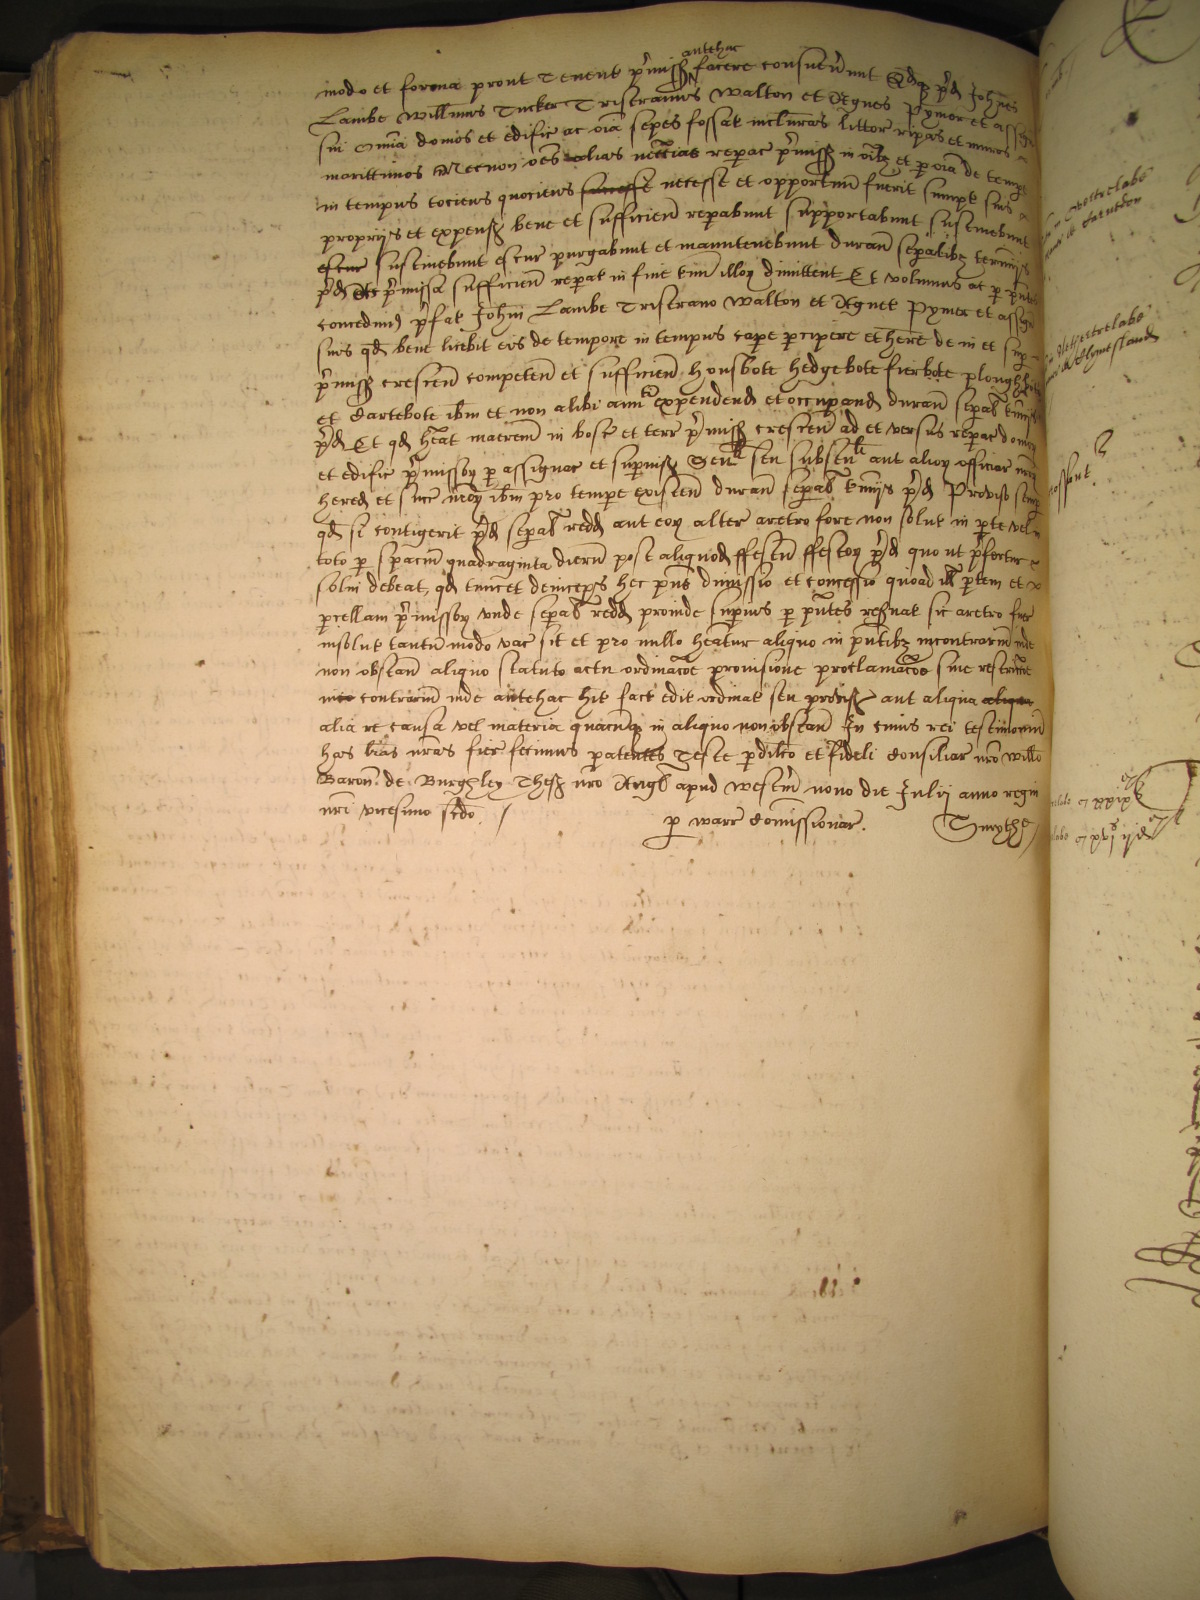 antehac
modo et forma prout Tenent p̄miss facere consueŭunt Qdq p̄d Johēs
Lambe Willm̄us Tucker Tristramus Walton et Agnes Pymor et assign
sui omīa domos et edific ac oīa sepes fossat inclusuras littor ripas et muros
marittimos Necnon oēs alias necc̄ias reparac p̄miss in oībȝ et p oīa de tempe
in tempus tociens quociens necesse et opportun̄ fuerit sumpt suis
proprijs et expens bene et sufficien̄ repabunt supportabunt sustinebunt
escur sustinebunt escur purgabunt et manutenebunt duran̄ sepalibȝ terminjs
p̄d Ac p̄missa sufficien̄ reperat in fine t̄min illoꝝ dimittent Et volumus ac p p̄ntes
concedim⁹ p̄fat Joh̄ni Lambe Tristramo Walton et Agnet Pymor et assign
suis qd̄ bene licebit eis de tempore in tempus cape pcipere et h̄ere de in et sup
p̄miss crescen̄ competen̄ et sufficien̄ housbote hedgebote fierbote ploughbote
et Cartebote ibm̄ et non alibi ann̄tim expendend et occupand duran̄ sepal t̄minjs
p̄d Et qd̄ h̄eat maerem̄ in bosc et terr p̄miss crescen̄ ad et versus reparac domoꝝ
et edific p̄missoꝝ p assignac et supuis Sen̄li seu subsen̄li aut alioꝝ officiar nr̄oꝝ
hered et succ nr̄oꝝ ibm̄ pro tempe existen̄ duran̄ sepal t̄minjs p̄d Proviso semp
qd̄ si contigerit p̄d sepal redd aut eoꝝ alter aretro fore non solut in pte vel in
toto p spaciū quadraginta dierū post aliquod ffestū ffestoꝝ p̄d quo ut p̄fertur
solui debeat, qd̄ tunc et deinceps hec p̄ns dimissio et concessio quoad ill ptem et
pcellam p̄missoꝝ vnde sepal redd proinde superius p p̄ntes reseruat sic aretro fuer
insolut tantūmodo vac sit et pro nullo h̄eatur aliquo in p̄ntibȝ incontrariū inde
non obstan̄ aliquo statuto actu ordinac̄oe provisione proclamac̄oe siue restricc̄oe
in contrariū inde antehac hit fact edit ordinat seu provis aut aliqua
alia re causa vel materia quacūq in aliquo non obstan̄ In cuius rei testimoniū
has l̄ras nr̄as fier fecimus patentes Teste pdilc̄o et fideli Consiliar nr̄o Willō
Baron̄ de Burghley Thes nr̄o Angl apud Westm̄ nono die Julij anno regni
nr̄i vicesimo scd̄o /
p warr Com̄issionar. Smythe